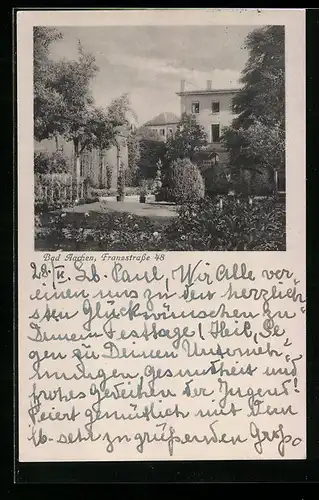 Bad Aachen, Franzstraße 48
28. IX. Lb. Paul, Wir Alle ver-
einen uns zu den herzlich-
sten Glückwünschen zu
Deinem Festtage! Heil, Se-
gen zu Deinen Unterneh-
mungen, Gesundheit und
frohes Gedeihen der Jugend!
Feiert gemütlich mit Den
lb- sehr zu grüßenden